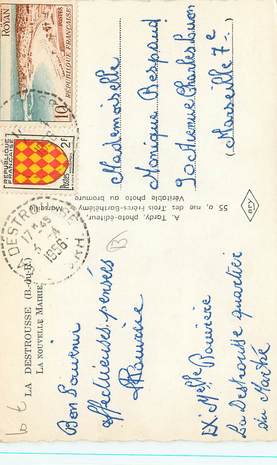 LA DESTROUSSE (B.-du-R.)
LA NOUVELLE MAIRIE
Bon Souvenir
affectueuses pensées
Mlle
La Destrousse quartier
du Maltrée
A. Tardy, photo-éditeur,
55 a, rue des Trois-Frères-Barthélemy - Marseille
Véritable photo au bromure
ROYAN
10F
REPUBLIQUE FRANÇAISE
REPUBLIQUE FRANÇAISE
2F
LA DESTROUSSE
17 H 45
5 - 4
1956
Mademoiselle
Monique Respaud
90 Avenue Charles
Marseille 7e